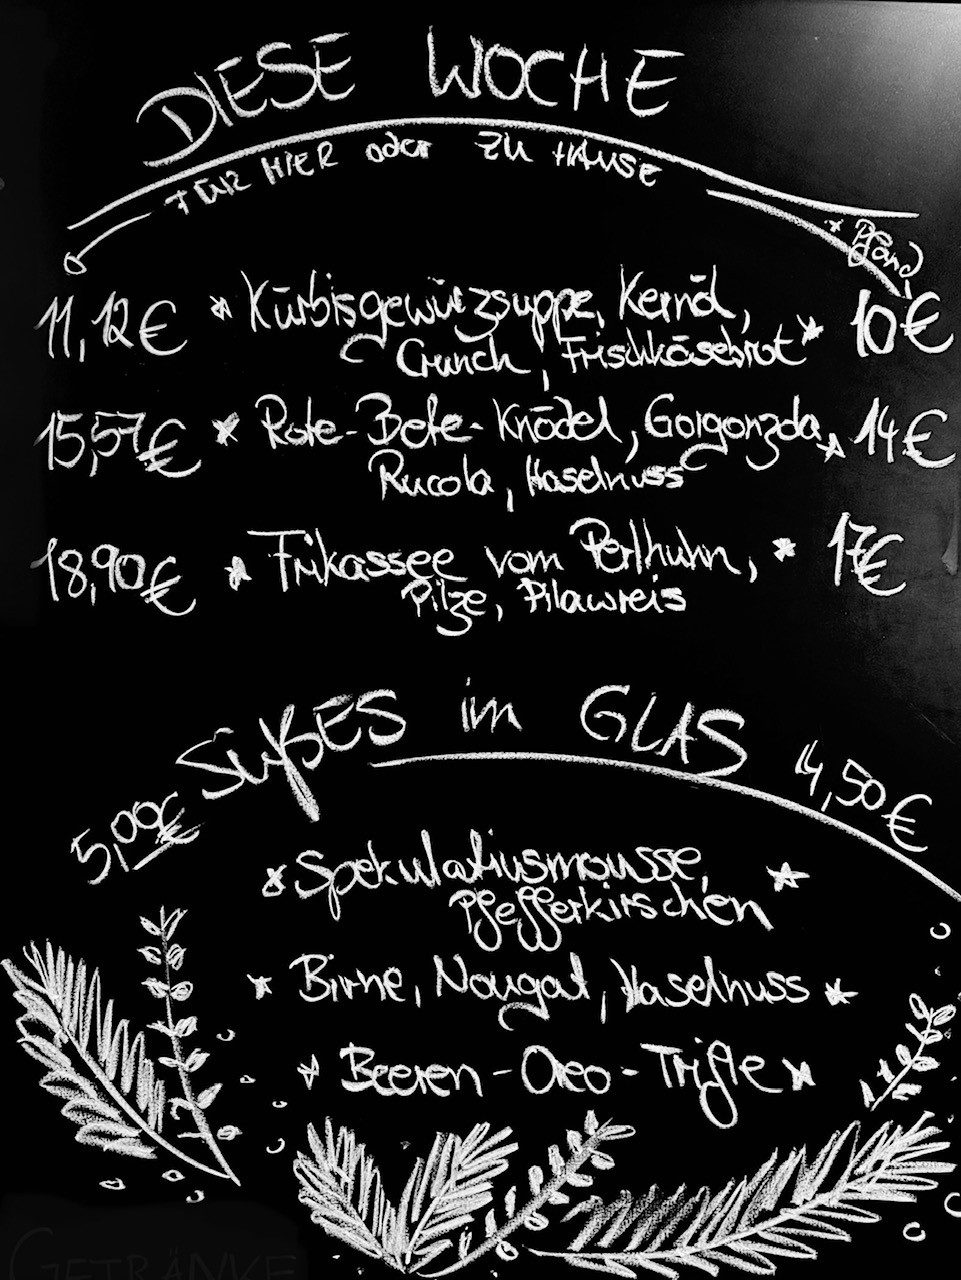 DIESE WOCHE
FÜR HIER oder ZU HAUSE
* Pfand
11,12€ * Kürbisgewürzsuppe, Kernöl, * 10€
Crunch, Frischkäsebrot
15,57€ * Rote-Bete-Knödel, Gorgonzola, * 14€
Rucola, Haselnuss
18,90€ * Frikassee vom Perlhuhn, * 17€
Pilze, Pilawreis
SüßES im GLAS
5,09€ 4,50€
* Spekulatiusmousse, *
Pfefferkirschen
* Birne, Nougat, Haselnuss *
* Beeren-Oreo-Trifle *
GETRÄNKE